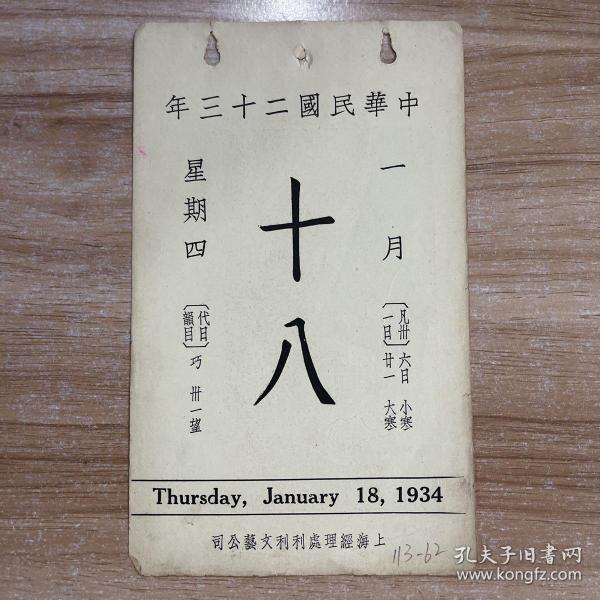 中華民國二十三年
一月
十八
星期四
〔凡卅一日〕
六日 小寒
廿一 大寒
〔代日韻目〕
巧 卅一望
Thursday, January 18, 1934
上海經理處利利文藝公司
113-62
孔夫子旧书网
www.kongfz.com